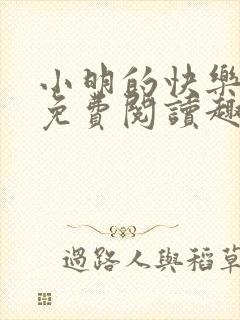 小明的快樂
免費閱讀趣
過路人與稻草